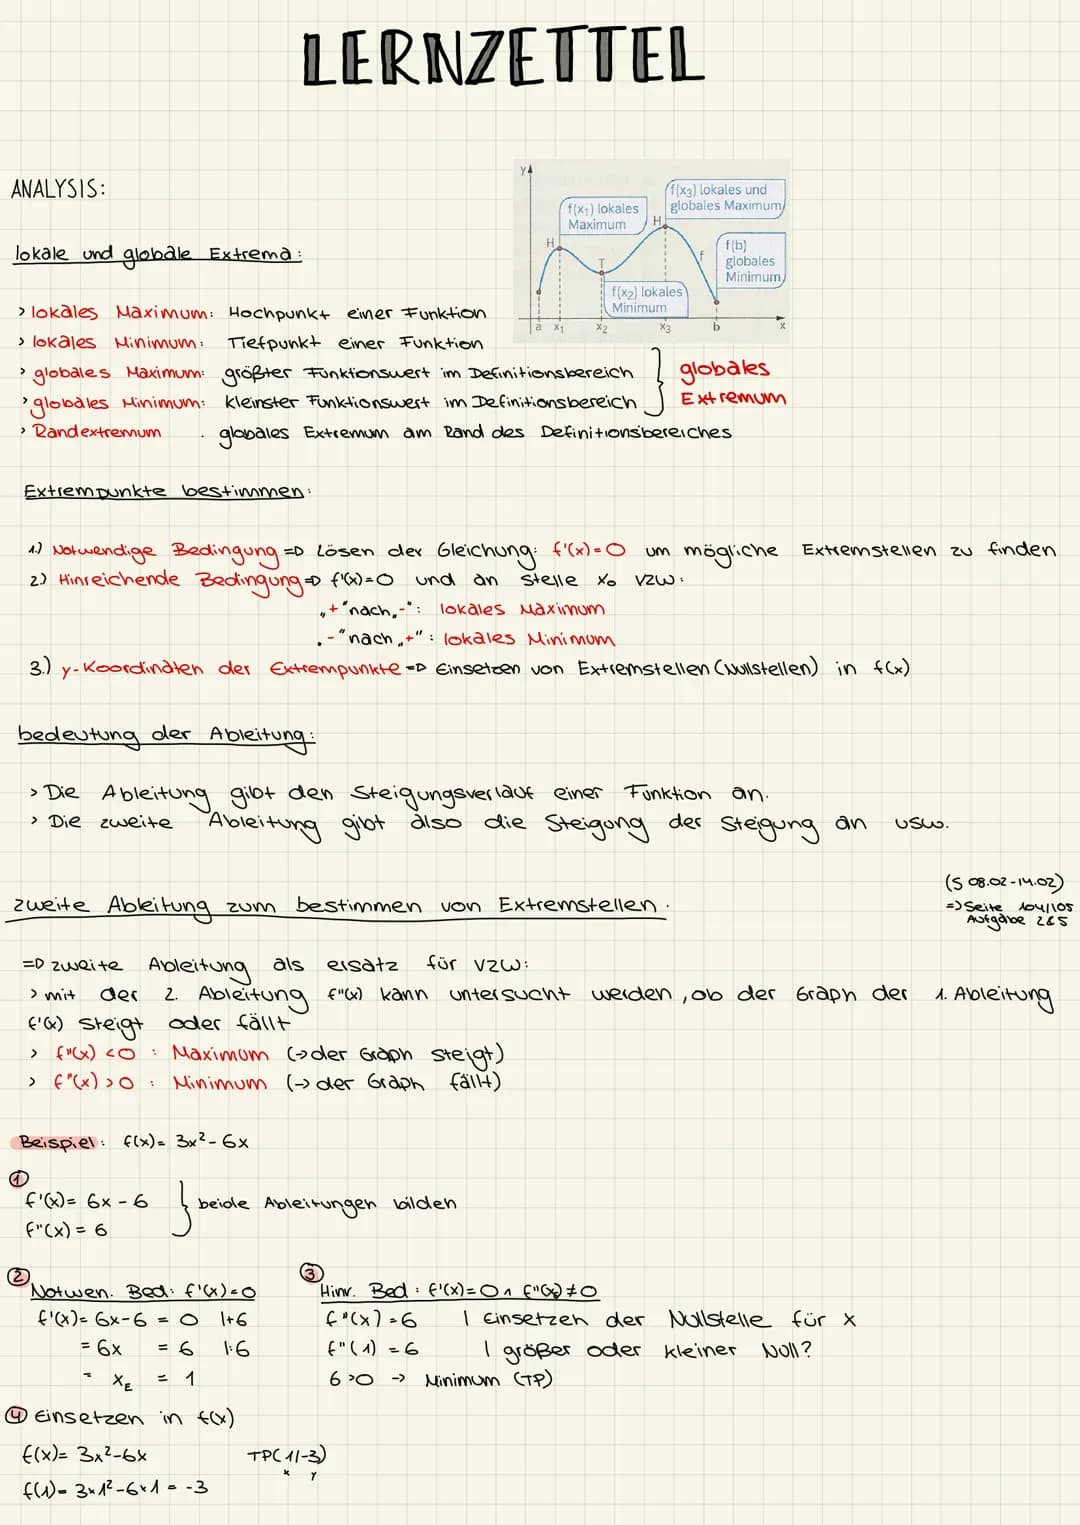 LERNZETTEL
ANALYSIS:
lokale und globale Extrema:
y
f(x₁) lokales
Maximum
f(x₃) lokales und
globales Maximum
H
H
T
f
f(b)
globales
Minimum
f(x₂) lokales
Minimum
a x₁ x₂ x₃ b x
> lokales Maximum: Hochpunkt einer Funktion
> lokales Minimum: Tiefpunkt einer Funktion
> globales Maximum: größter Funktionswert im Definitionsbereich
> globales Minimum: kleinster Funktionswert im Definitionsbereich
globales
Extremum
> Randextremum : globales Extremum am Rand des Definitionsbereiches
Extrempunkte bestimmen:
1.) Notwendige Bedingung => Lösen der Gleichung: f'(x)=0 um mögliche Extremstellen zu finden
2.) Hinreichende Bedingung => f'(x)=0 und an Stelle x₀ VZW:
„+" nach „-": lokales Maximum
„-" nach „+": lokales Minimum
3.) y-Koordinaten der Extrempunkte => Einsetzen von Extremstellen (Nullstellen) in f(x)
bedeutung der Ableitung:
> Die Ableitung gibt den Steigungsverlauf einer Funktion an.
> Die zweite Ableitung gibt also die Steigung der Steigung an usw.
zweite Ableitung zum bestimmen von Extremstellen.
(S 08.02-14.02)
=> Seite 104/105
Aufgabe 2&5
=> zweite Ableitung als ersatz für VZW:
> mit der 2. Ableitung f"(x) kann untersucht werden, ob der Graph der 1. Ableitung
f'(x) steigt oder fällt
> f"(x) <0 : Maximum (→ der Graph steigt)
> f"(x) >0 : Minimum (→ der Graph fällt)
Beispiel: f(x)= 3x²-6x
①
f'(x)= 6x - 6
f"(x) = 6
beide Ableitungen bilden
②
Notwen. Bed: f'(x)=0
f'(x)= 6x-6 = 0 |+6
= 6x = 6 |:6
= x_E = 1
③
Hinr. Bed: f'(x)=0 ∧ f"(x)≠0
f"(x) = 6 | Einsetzen der Nullstelle für x
f"(1) = 6 | größer oder kleiner Null?
6 >0 → Minimum (TP)
④ Einsetzen in f(x)
f(x)= 3x²-6x TP(1/-3)
x y
f(1)= 3×1²-6×1 = -3